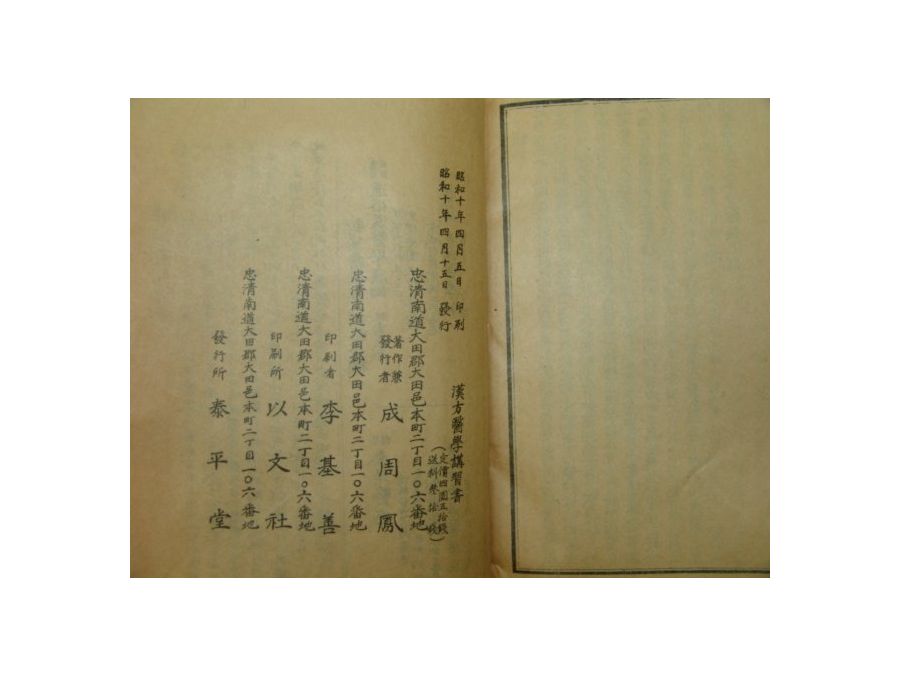 昭和十年四月五日 印刷
昭和十年四月十五日 發行
漢方醫學講習書
(定價四圓五拾錢
送料參拾錢)
忠淸南道大田郡大田邑本町二丁目一〇六番地
著作兼
發行者 成周鳳
忠淸南道大田郡大田邑本町二丁目一〇六番地
印刷者 李基善
忠淸南道大田郡大田邑本町二丁目一〇六番地
印刷所 以文社
忠淸南道大田郡大田邑本町二丁目一〇六番地
發行所 泰平堂